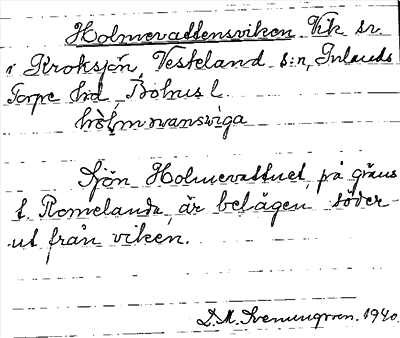 Holmevattensviken Vik sv.
i Kroksjön, Vesteland s:n, Inlands
Torpe hd, Bohus l.
hòlmovansviga
Sjön Holmevattnet, på gräns
t. Romelanda, är belägen söder-
ut från viken.
D.M. 1940.